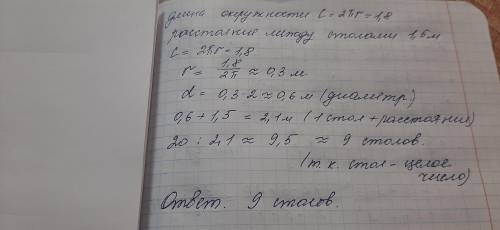 длина окружности C = 2πr = 1,8
расстояние между столами 1,5м
C = 2πr = 1,8
r = 1,8/2π ≈ 0,3 м
d = 0,3·2 ≈ 0,6 м (диаметр)
0,6 + 1,5 = 2,1м (1 стол + расстояние)
20 : 2,1 ≈ 9,5 ≈ 9 столов.
(т.к. стол - целое
число)
Ответ. 9 столов.